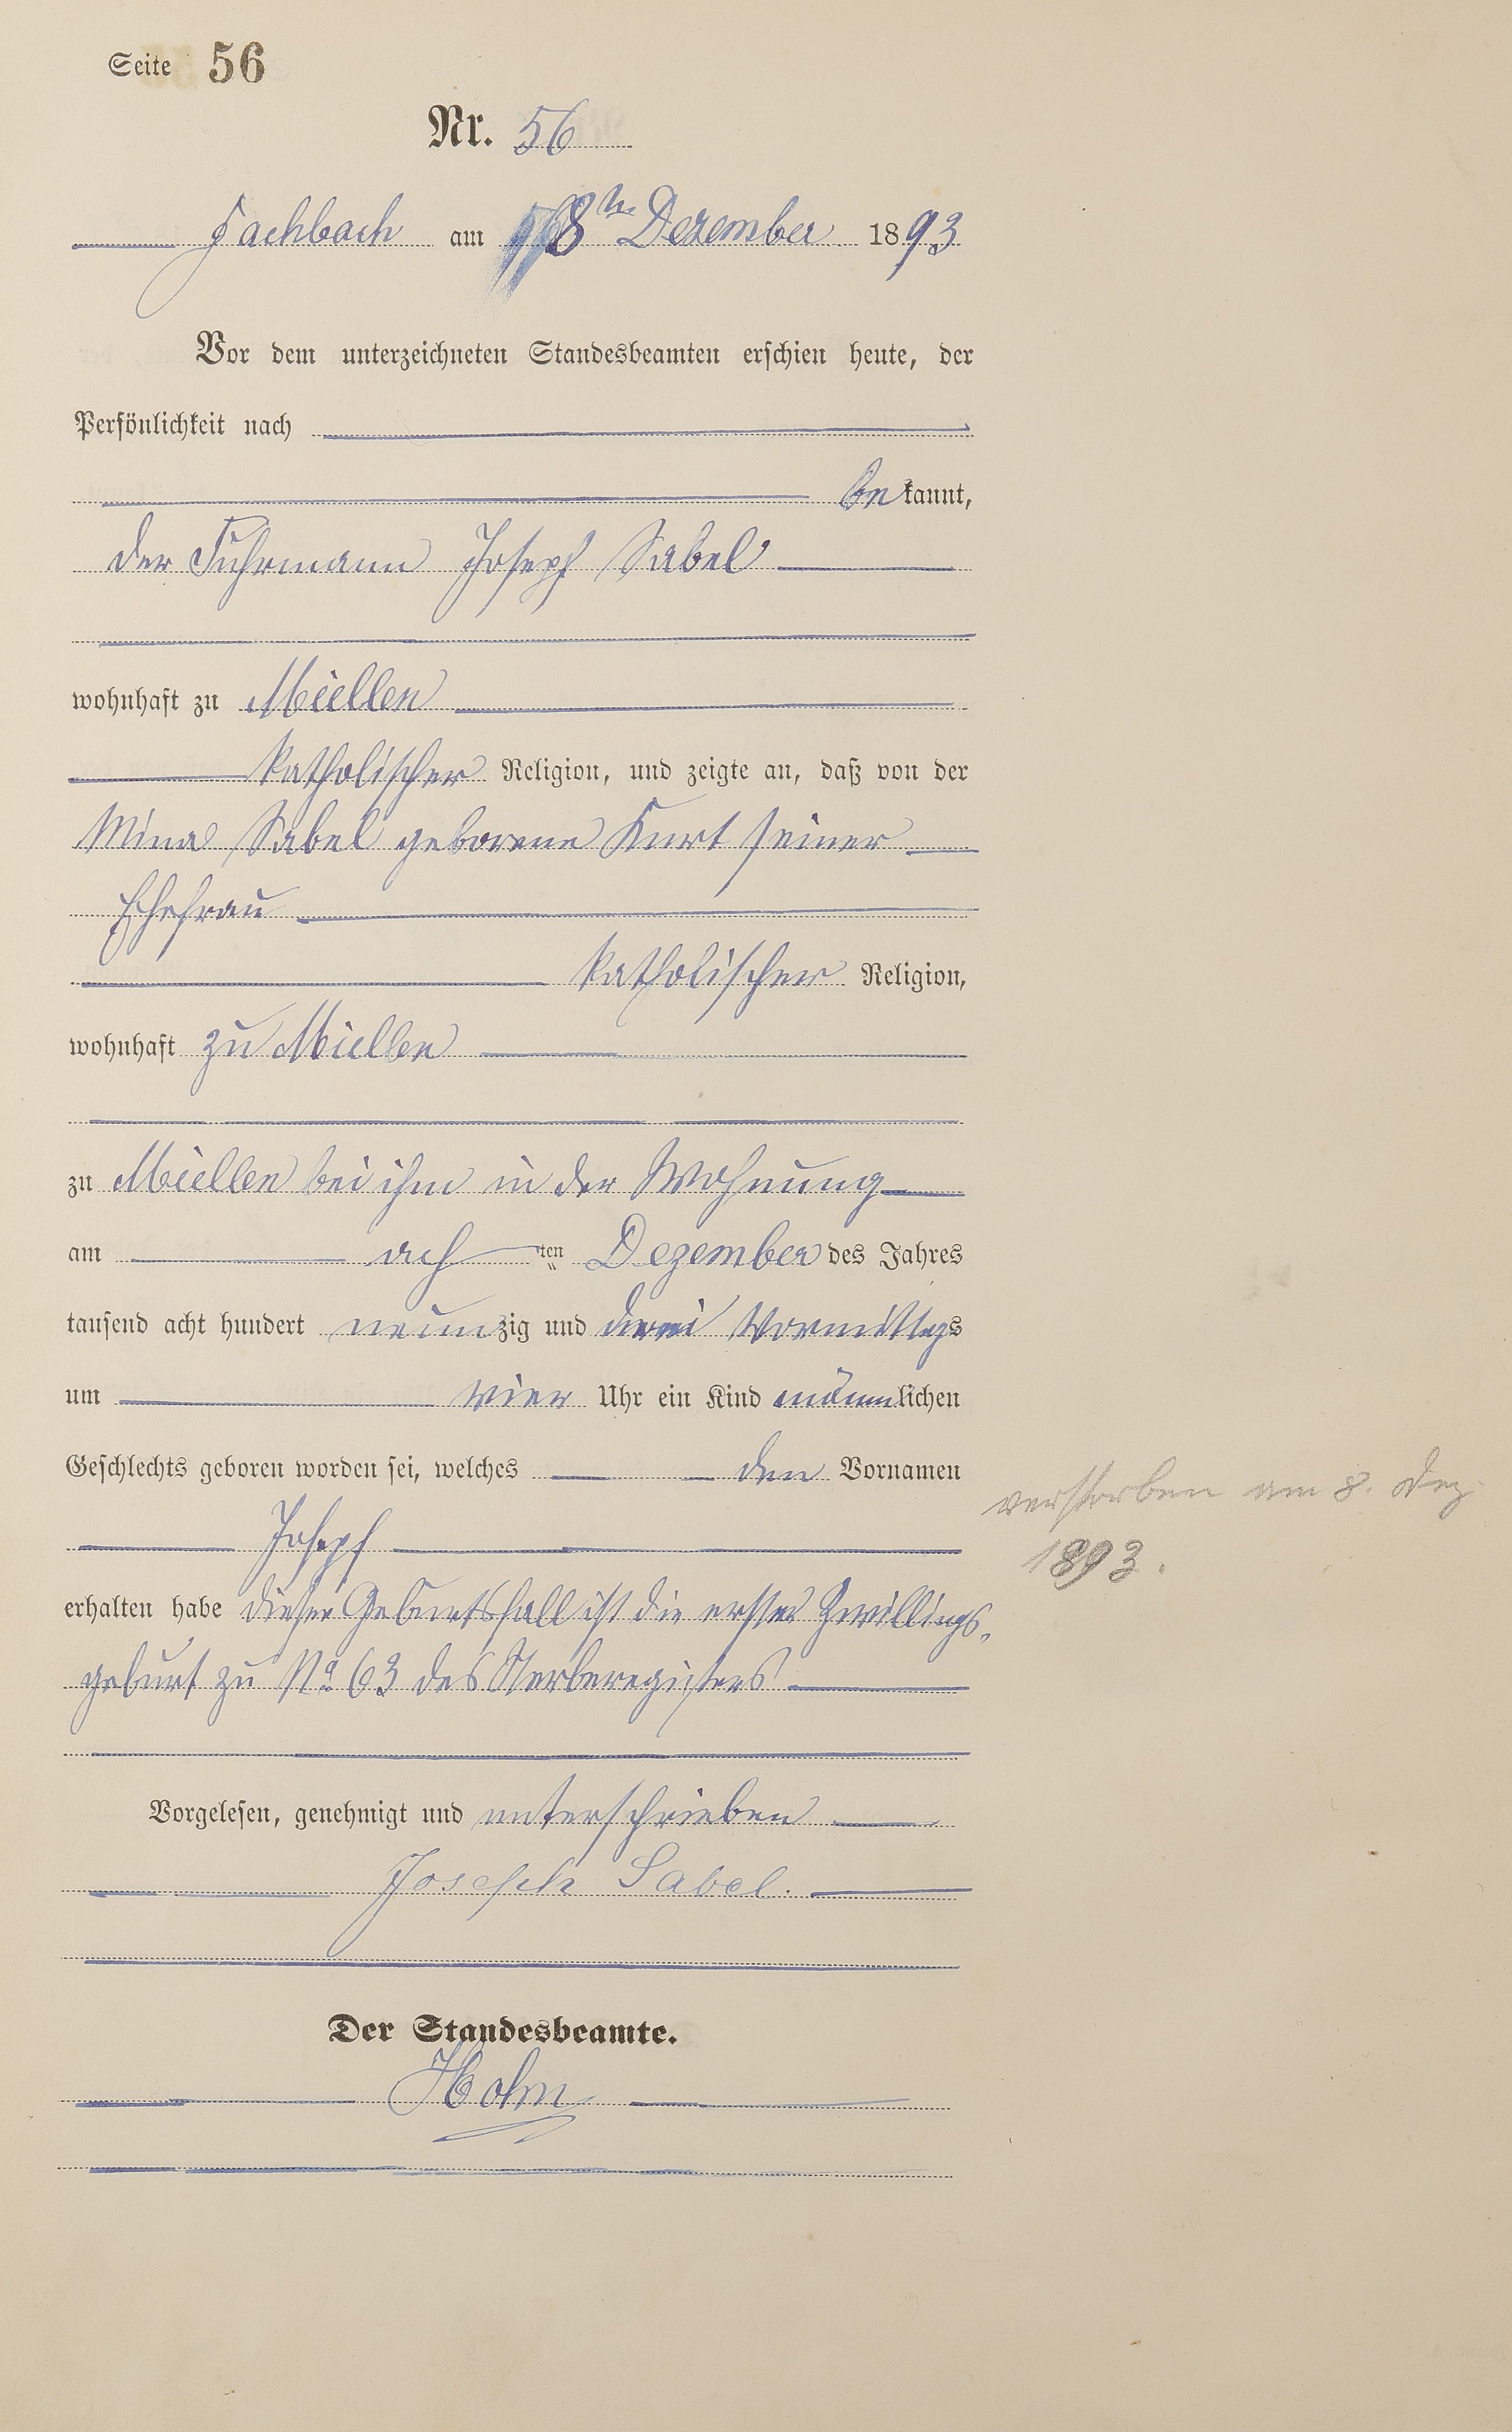 Seite 56
Nr. 56
Fachbach am 8ten Dezember 1893
Vor dem unterzeichneten Standesbeamten erschien heute, der
Persönlichkeit nach
bekannt,
der Fuhrmann Joseph Sabel
wohnhaft zu Miellen
katholischer Religion, und zeigte an, daß von der
Mina Sabel geborene Kurt seiner
Ehefrau
katholischer Religion,
wohnhaft zu Miellen
zu Miellen bei ihm in der Wohnung
am achten Dezember des Jahres
tausend acht hundert neunzig und drei Vormittags
um vier Uhr ein Kind männlichen
Geschlechts geboren worden sei, welches den Vornamen
verstorben am 8. Dez.
Joseph
1893.
erhalten habe dieser Geburtsfall ist die erste Zwillings-
geburt zu No 63 des Sterberegisters
Vorgelesen, genehmigt und unterschrieben
Joseph Sabel.
Der Standesbeamte.